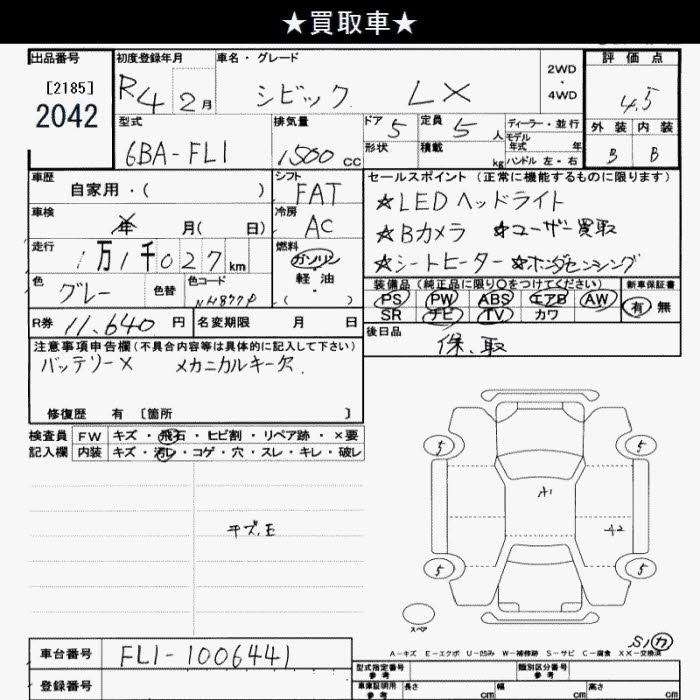 ★買取車★
出品番号
[2185]
2042
初度登録年月
R4 2月
車名・グレード
シビック LX
2WD
・
4WD
評価点
4.5
外装 内装
B B
型式
6BA-FL1
排気量
1500 cc
ドア 5
形状
定員 5人
積載 kg
ディーラー・並行
モデル年式 年
ハンドル 左・右
車歴
自家用・( )
シフト
FAT
車検
年 月( 日)
冷房
AC
走行
1万1千027km
燃料
ガソリン
軽・油
・
( )
色
グレー
色替
色コード
NH877P
R券 11,640円
名変期限 月 日
セールスポイント (正常に機能するものに限ります)
☆LEDヘッドライト
☆Bカメラ ☆ユーザー買取
☆シートヒーター ☆ホンダセンシング
装備品(純正品に限り○をつけてください)
PS PW ABS エアB AW
SR ナビ TV カワ
新車保証書
有 無
後日品
保、取
注意事項申告欄(不具合内容等は具体的に記入して下さい)
バッテリー× メカニカルキー欠.
修復歴 有 〔箇所 〕
検査員
記入欄
FW キズ・飛石・ヒビ割・リペア跡・×要
内装 キズ・汚レ・コゲ・穴・スレ・キレ・破レ
キズ.E
5
5
A1
A2
5
5
スペア
S1カ
A-キズ E-エクボ U-凹み W-補修跡 S-サビ C-腐食 XX-交換済
車台番号 FL1-1006441
登録番号
型式指定番号
参考
類別区分番号
参考
車庫証明用
参考
長さ cm
幅 cm
高さ cm